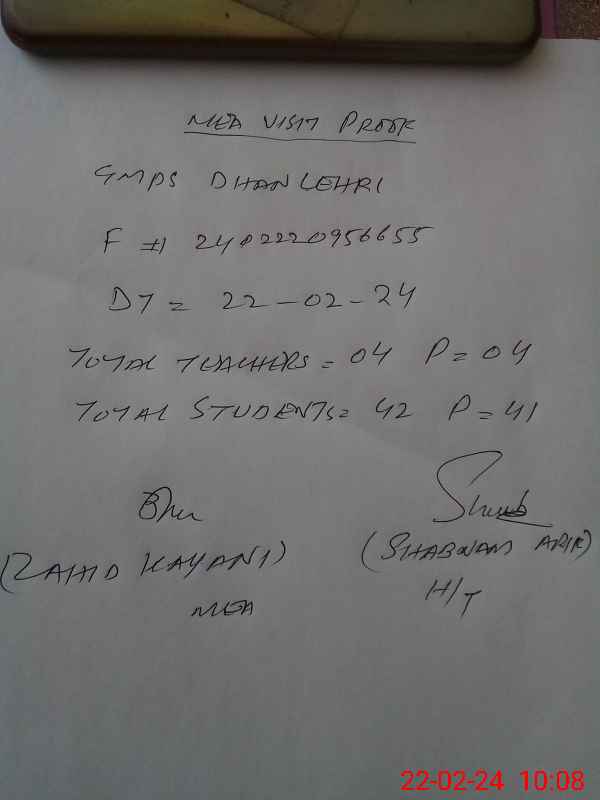 MEA VISIT PROOF
GMPS DHAN LEHRI
F # 2402220956655
DT = 22-02-24
TOTAL TEACHERS = 04 P = 04
TOTAL STUDENTS = 42 P = 41
(ZAHID KAYANI) (SHABNAM ARIF)
MEA H/T
22-02-24 10:08